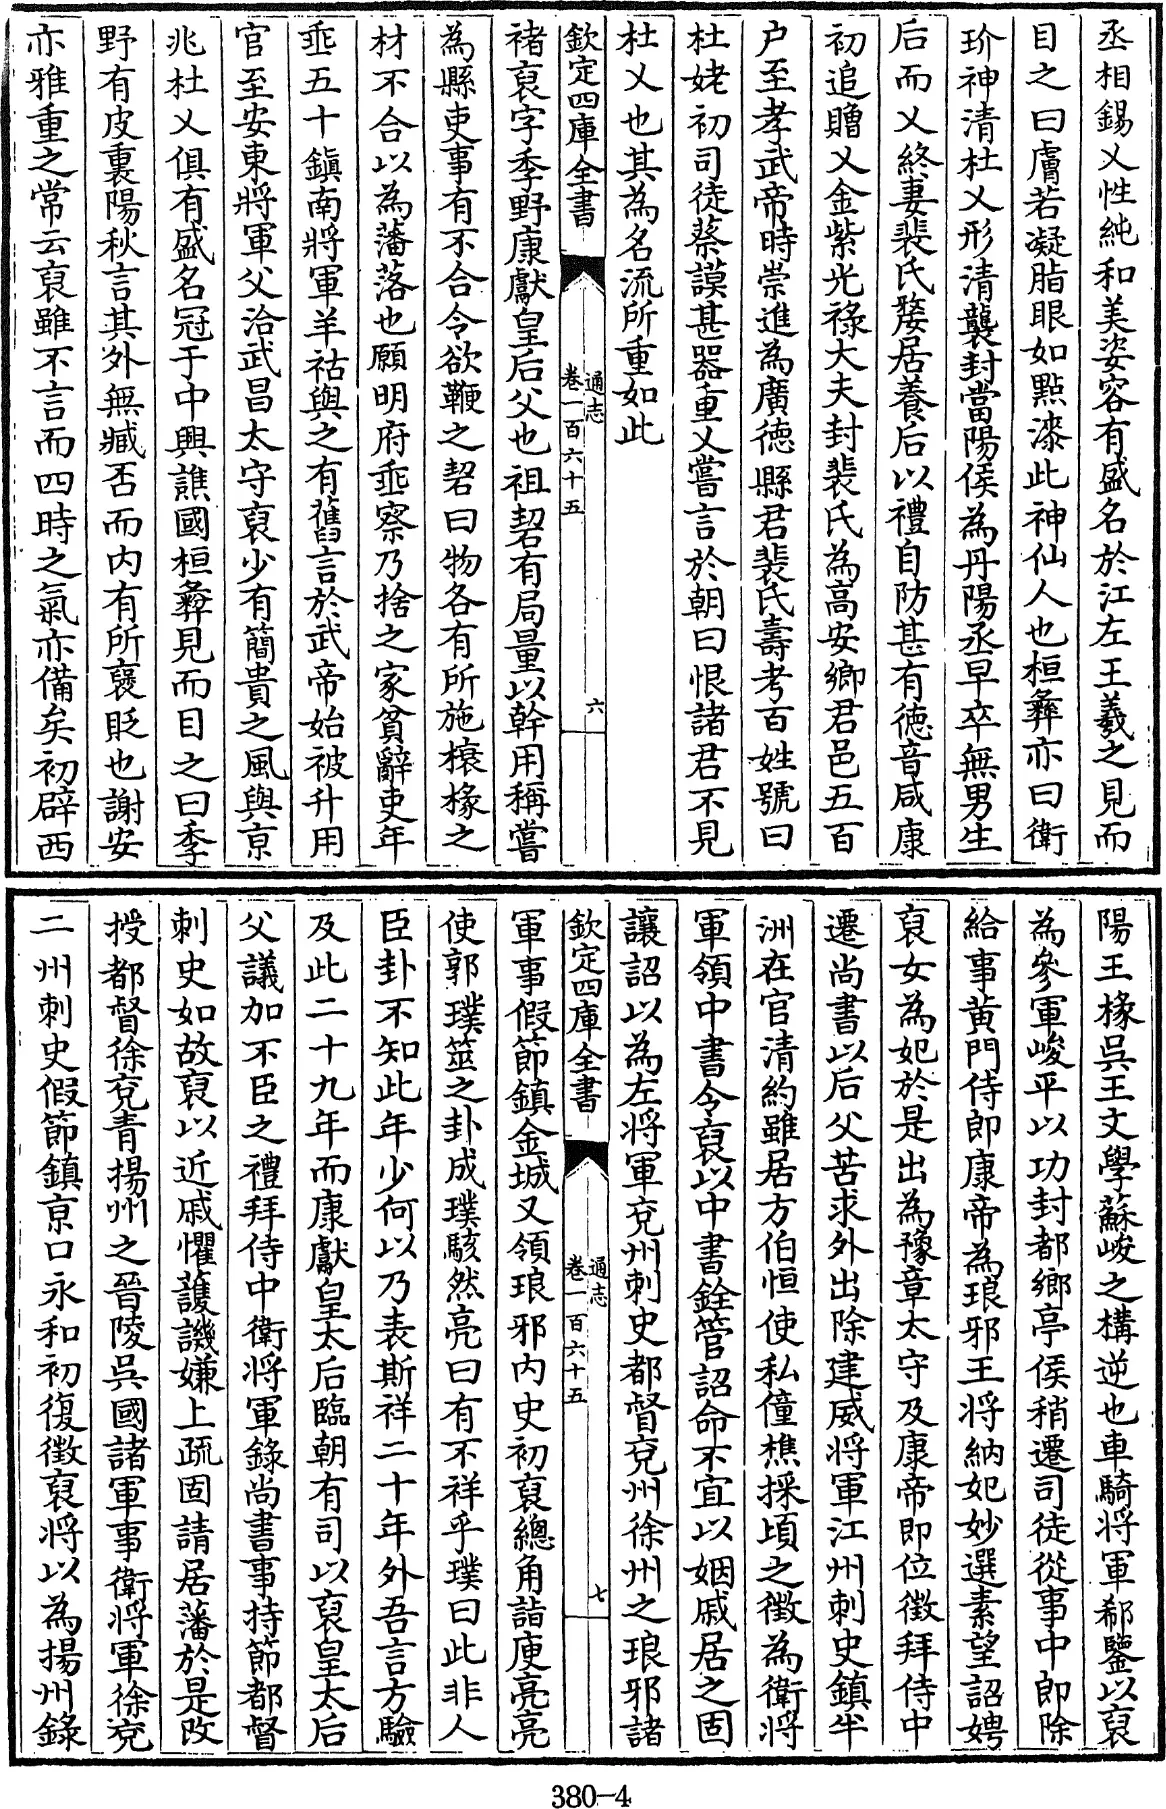 丞相錫乂性純和美姿容有盛名於江左王羲之見而
目之曰膚若凝脂眼如點漆此神仙人也桓彝亦曰衛
玠神清杜乂形清襲封當陽侯為丹陽丞早卒無男生
后而乂終妻裴氏嫠居養后以禮自防甚有德音咸康
初追贈乂金紫光祿大夫封裴氏為高安鄉君邑五百
户至孝武帝時崇進為廣德縣君裴氏壽考百姓號曰
杜姥初司徒蔡謨甚器重乂嘗言於朝曰恨諸君不見
杜乂也其為名流所重如此
欽定四庫全書
通志
卷一百六十五
六
褚裒字季野康獻皇后父也祖䂮有局量以幹用稱嘗
為縣吏事有不合令欲鞭之䂮曰物各有所施榱椽之
材不合以為藩落也願明府垂察乃捨之家貧辭吏年
垂五十鎮南將軍羊祜與之有舊言於武帝始被升用
官至安東將軍父洽武昌太守裒少有簡貴之風與京
兆杜乂俱有盛名冠于中興譙國桓彝見而目之曰季
野有皮裏陽秋言其外無臧否而内有所褒貶也謝安
亦雅重之常云裒雖不言而四時之氣亦備矣初辟西
陽王椽吳王文學蘇峻之構逆也車騎將軍郗鑒以裒
為參軍峻平以功封都鄉亭侯稍遷司徒從事中郎除
給事黃門侍郎康帝為琅邪王將納妃妙選素望詔娉
裒女為妃於是出為豫章太守及康帝即位徵拜侍中
遷尚書以后父苦求外出除建威將軍江州刺史鎮半
洲在官清約雖居方伯恒使私僮樵採頃之徵為衛將
軍領中書令裒以中書銓管詔命不宜以姻戚居之固
讓詔以為左將軍兗州刺史都督兗州徐州之琅邪諸
欽定四庫全書
通志
卷一百六十五
七
軍事假節鎮金城又領琅邪内史初裒總角詣庾亮亮
使郭璞筮之卦成璞駭然亮曰有不祥乎璞曰此非人
臣卦不知此年少何以乃表斯祥二十年外吾言方驗
及此二十九年而康獻皇太后臨朝有司以裒皇太后
父議加不臣之禮拜侍中衛將軍錄尚書事持節都督
刺史如故裒以近戚懼䕶譏嫌上疏固請居藩於是改
授都督徐兗青揚州之晉陵吳國諸軍事衛將軍徐兗
二州刺史假節鎮京口永和初復徵裒將以為揚州錄
380-4